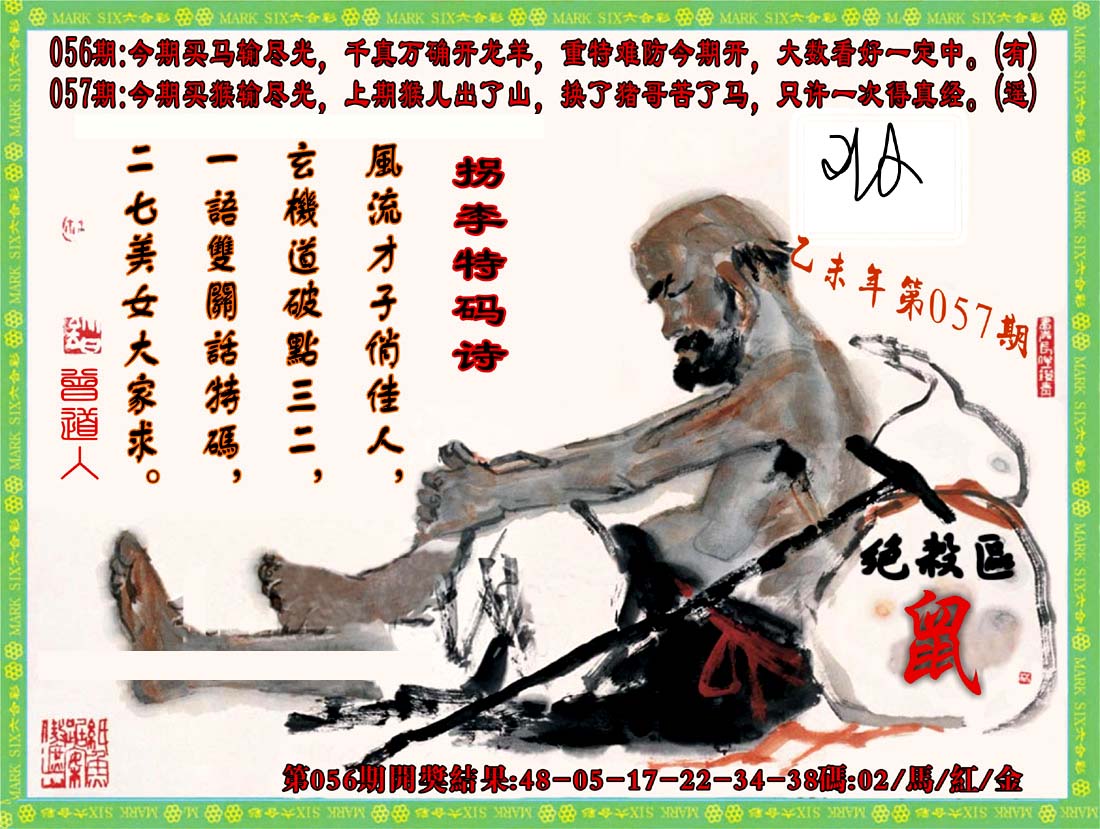 MARK SIX六合彩
056期:今期买马输尽光，千真万确开龙羊，重特难防今期开，大数看好一定中。(有)
057期:今期买猴输尽光，上期猴儿出了山，换了猪哥苦了马，只许一次得真经。(遥)
拐李特码诗
風流才子俏佳人，
玄機道破點三二，
一語雙關話特碼，
二七美女大家求。
曾道人
乙未年第057期
绝殺區
鼠
第056期開獎結果:48-05-17-22-34-38碼:02/馬/紅/金